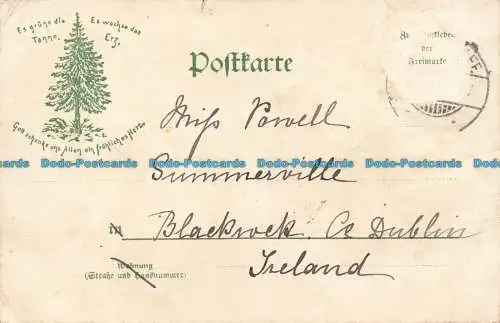 Es grüne die Es wachse das
Tanne, Erz,
Gott schenke uns Allen ein fröhliches Herz.
Postkarte
der
Freimarke
Miss Powell
Summerville
in Blackrock Co Dublin
Ireland
Wohnung
(Straße und Hausnummer)
Dodo-Postcards Dodo-Postcards Dodo-Postcards Dodo-Postcards